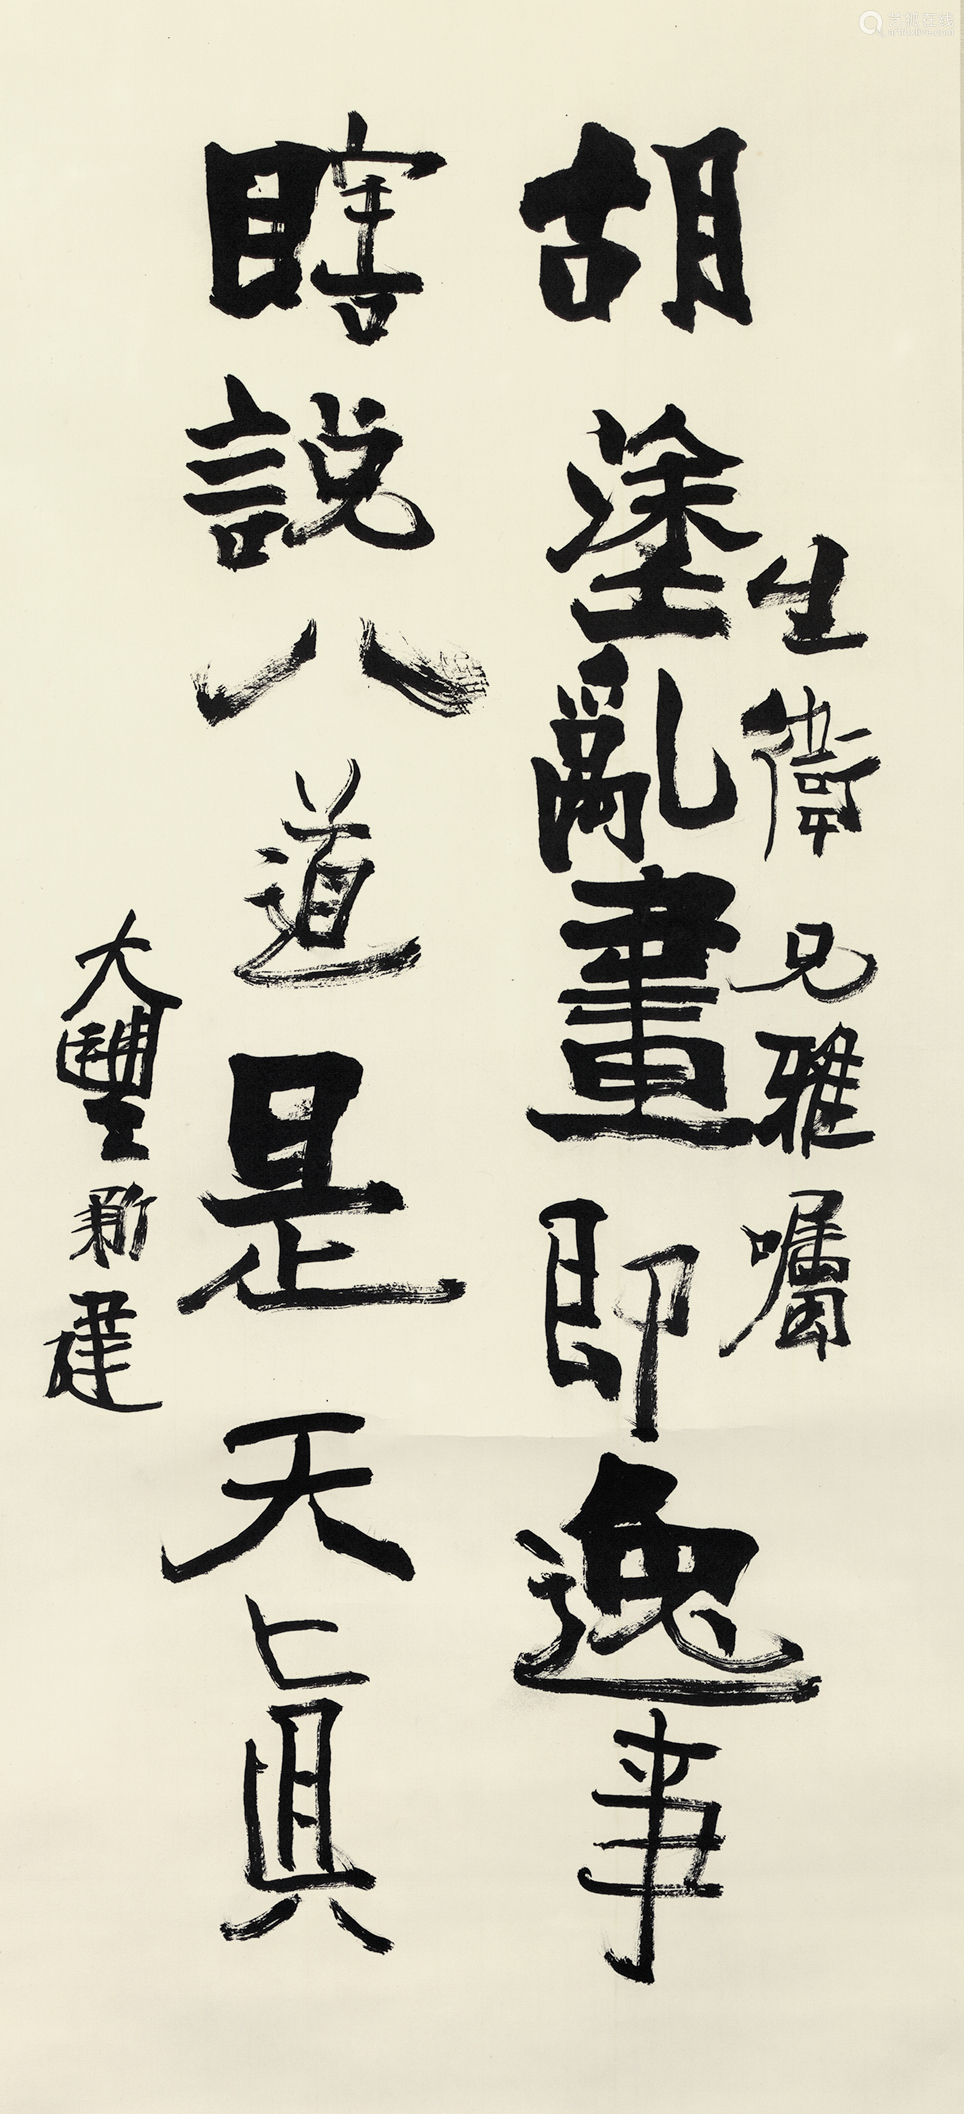 生衛兄雅囑
胡塗亂畫即逸事
瞎説八道是天真
大豐新建